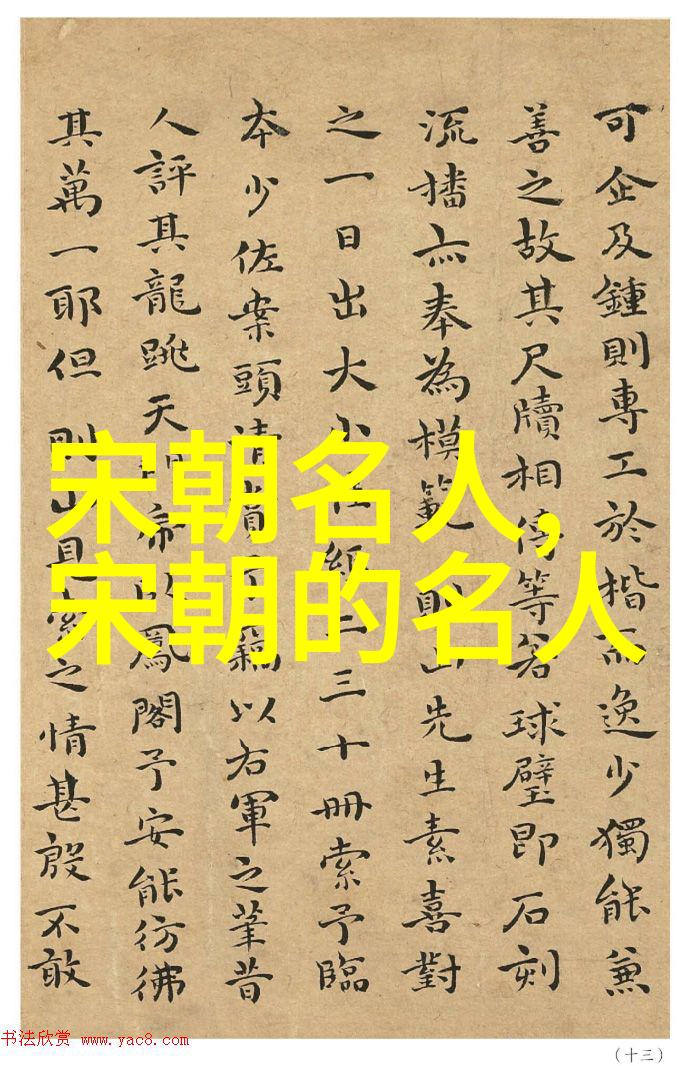 可企及鍾則專工於楷而逸少獨能兼
善之故其尺牘相傳等若球璧即石刻
流播亦奉為模範則山先生素喜對
之一日出大小紙二三十冊索予臨
本少佐案頭清賞予竊以右軍之筆昔
人評其龍跳天門虎臥鳳閣予安能彷彿
其萬一耶但則山見索之情甚殷不敢
宋朝名人,
宋朝的名人
书法欣赏 www.yac8.com
(十三)